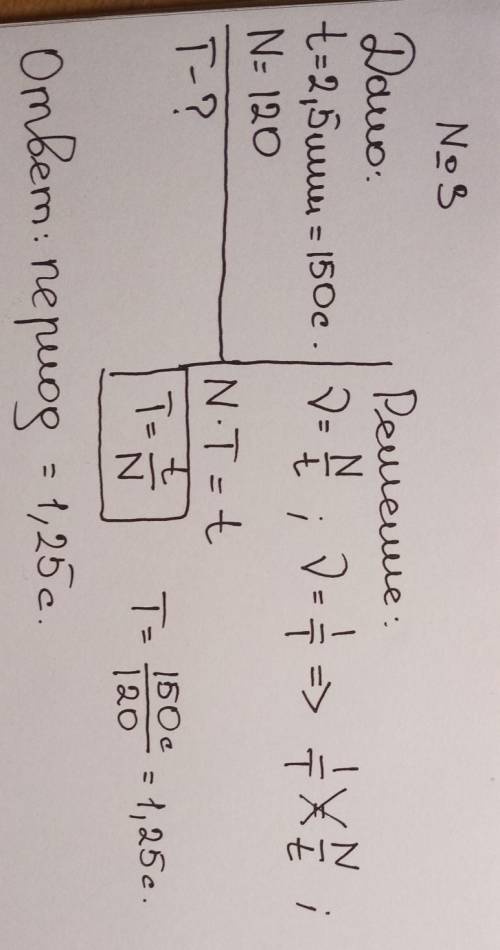 №3
Дано:
t=2,5мин=150с.
N=120
T-?
Решение:
ν=N/t ; ν=1/T => 1/T = N/t ;
N·T=t
T=t/N
T=150с/120=1,25с.
Ответ: период =1,25с.